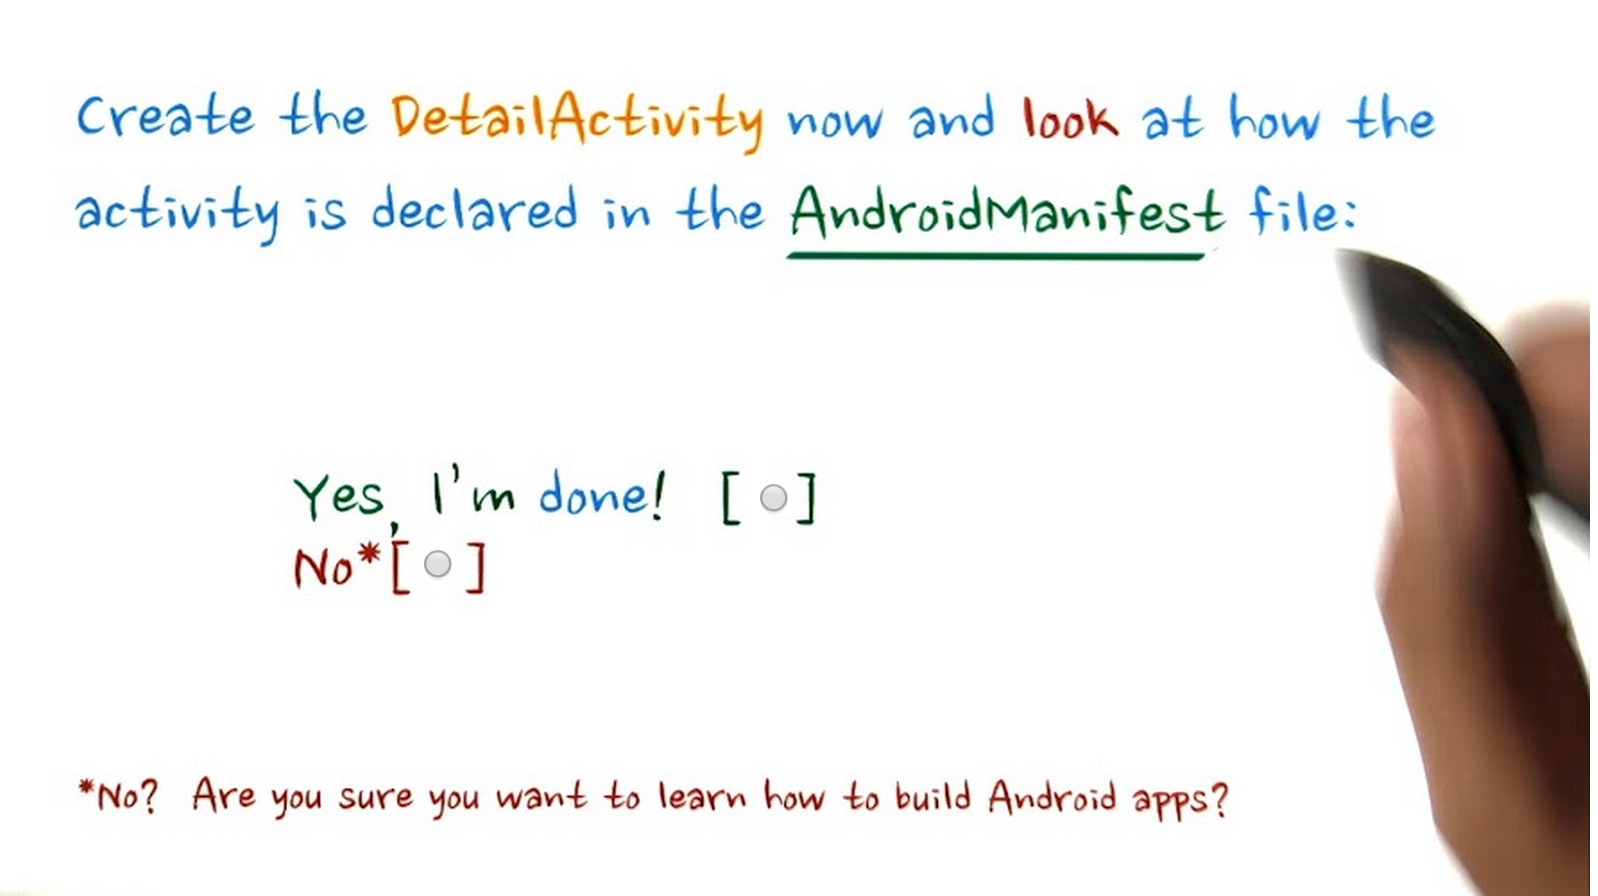 Create the DetailActivity now and look at how the
activity is declared in the AndroidManifest file:
Yes, I'm done! [ ]
No*[ ]
*No? Are you sure you want to learn how to build Android apps?